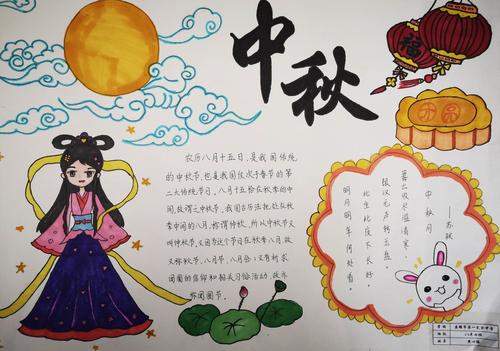 中秋
福
团圆
农历八月十五日，是我国传统
的中秋节，也是我国仅次于春节的第
二大传统节日。八月十五恰在秋季的中
间，故谓之中秋节。我国古历法把处在秋
季中间的八月，称谓仲秋，所以中秋节又
叫仲秋节。又因为这个节日在秋季八月，故
又称秋节、八月节、八月会；又有祈求
团圆的信仰和相关习俗活动，故亦
称团圆节。
中秋月
——苏轼
暮云收尽溢清寒，
银汉无声转玉盘。
此生此夜不长好，
明月明年何处看。